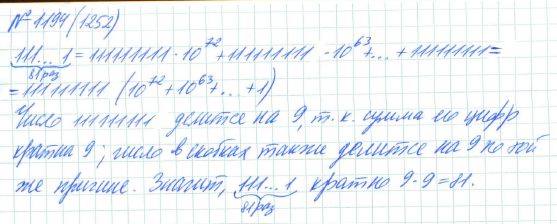 № 1194 (1252)
111...1 = 111111111 · 10^72 + 111111111 · 10^63 + ... + 111111111 =
81 раз
= 111111111 (10^72 + 10^63 + ... + 1)
Число 111111111 делится на 9, т. к. сумма его цифр
кратна 9; число в скобках также делится на 9 по той
же причине. Значит, 111...1 кратно 9·9=81.
81 раз